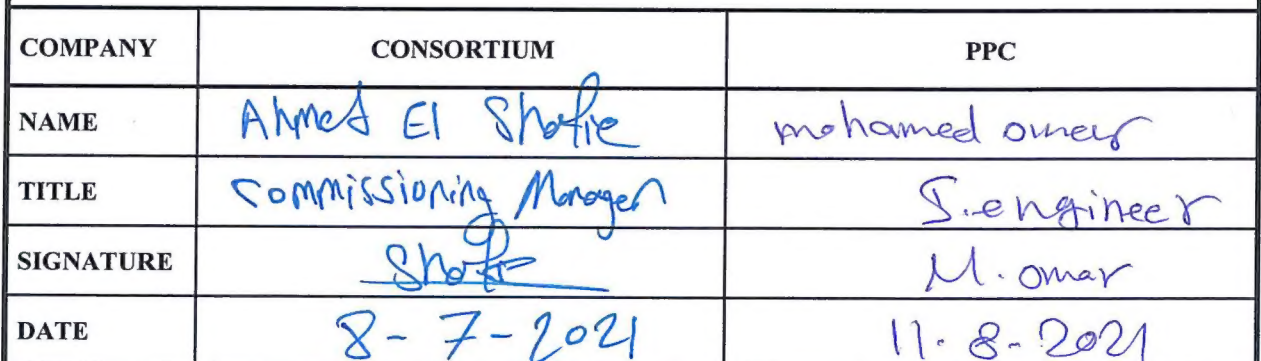 COMPANY CONSORTIUM PPC
NAME Ahmed El Shafie mohamed omar
TITLE Commissioning Manager S.engineer
SIGNATURE Shafie M. omar
DATE 8-7-2021 11.8.2021